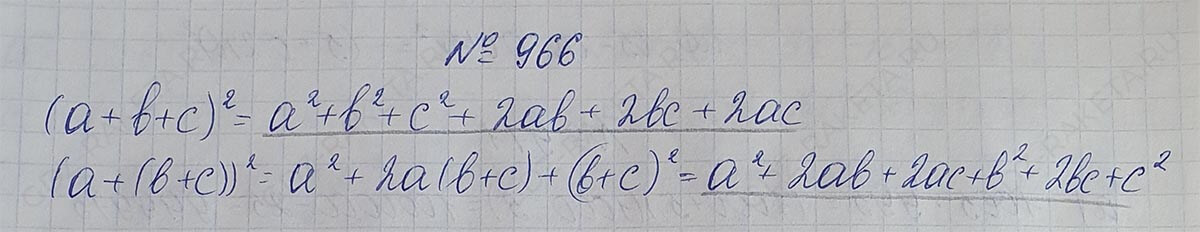 № 966
(a+b+c)² = a²+b²+c²+2ab+2bc+2ac
(a+(b+c))² = a²+2a(b+c)+(b+c)² = a²+2ab+2ac+b²+2bc+c²